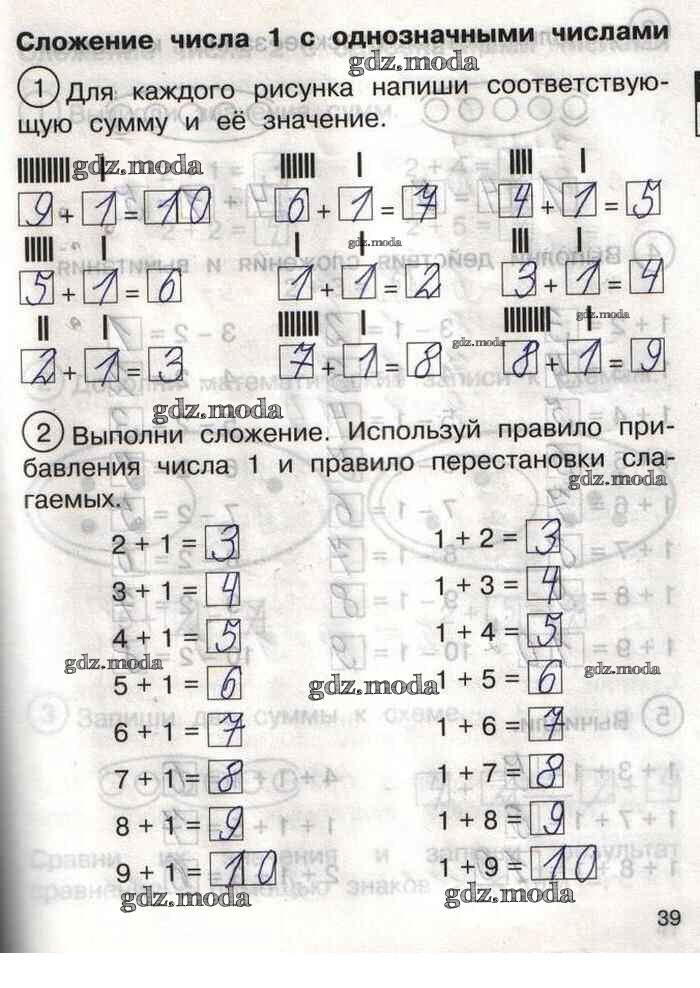 Сложение числа 1 с однозначными числами
gdz.moda
1 Для каждого рисунка напиши соответствую-
щую сумму и её значение.
gdz.moda
9 + 1 = 10 6 + 1 = 7 4 + 1 = 5
gdz.moda
5 + 1 = 6 1 + 1 = 2 3 + 1 = 4
gdz.moda
2 + 1 = 3 7 + 1 = 8 8 + 1 = 9
gdz.moda
2 Выполни сложение. Используй правило при-
бавления числа 1 и правило перестановки сла-
gdz.moda
гаемых.
2 + 1 = 3 1 + 2 = 3
3 + 1 = 4 1 + 3 = 4
4 + 1 = 5 1 + 4 = 5
gdz.moda gdz.moda
5 + 1 = 6 1 + 5 = 6
gdz.moda
6 + 1 = 7 1 + 6 = 7
7 + 1 = 8 1 + 7 = 8
8 + 1 = 9 1 + 8 = 9
9 + 1 = 10 1 + 9 = 10
gdz.moda gdz.moda
39